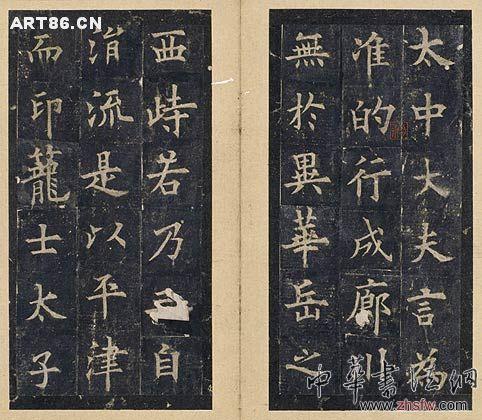 太中大夫言為
准的行成廊
無於異華岳之
西峙若乃自
渭流是以平津
而印蘢士太子
ART86.CN
中華書法網
www.zhsfw.com